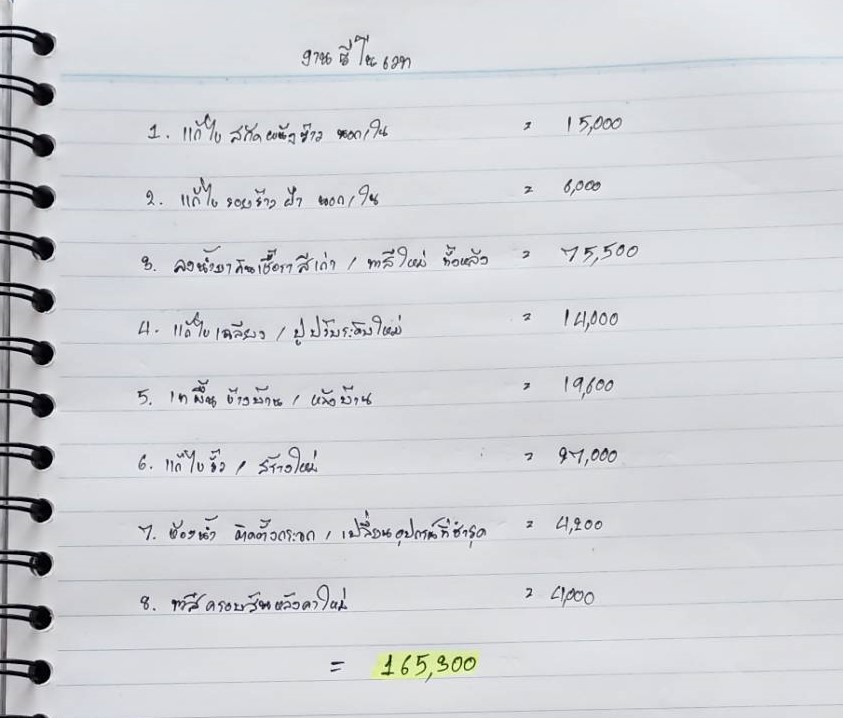 งาน รีโนเวท
1. แก้ไข สกัดผนังร้าว นอก/ใน = 15,000
2. แก้ไข รอยร้าว ฝ้า นอก/ใน = 6,000
3. ลงน้ำยากันเชื้อราสีเก่า / ทาสีใหม่ ทั้งหลัง = 75,500
4. แก้ไขเฉลียง / ปูปรับระดับใหม่ = 14,000
5. เทพื้น ข้างบ้าน / หลังบ้าน = 19,600
6. แก้ไขรั้ว / สร้างใหม่ = 27,000
7. ห้องน้ำ ติดตั้งกระจก / เปลี่ยนอุปกรณ์ที่ชำรุด = 4,200
8. ทาสีครอบสันหลังคาใหม่ = 4,000
= 165,300